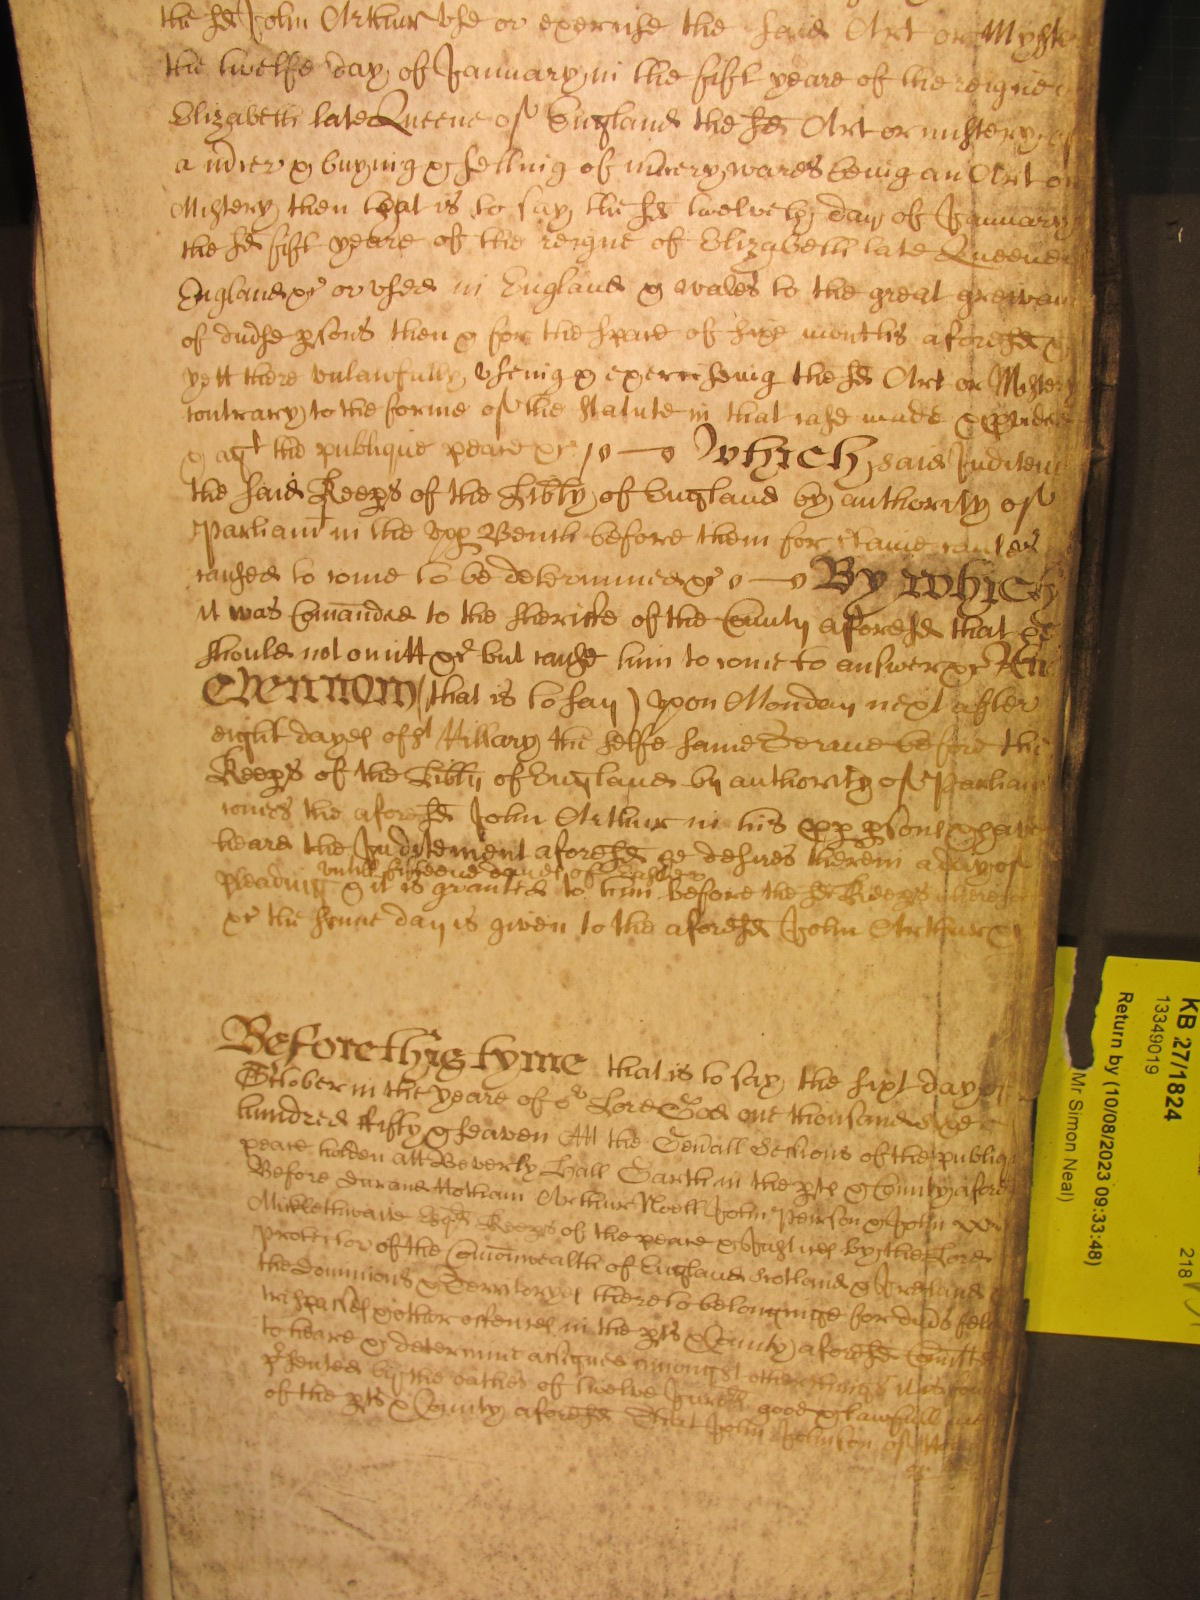 the sd John Arthur vse or exercise the said Art or Myste
the twelfe day of January in the fift yeare of the reigne
Elizabeth late Queene of England the sd Art or mistery
a m'cer & buying & selling of mercery wares being an Art or
Mistery then that is to say the sd twelveth day of January
the sd fift yeare of the reigne of Elizabeth late Queene
England &c or vsed in England & wales to the great
of diu'se psons then & for the space of six months aforesd &
yett there vnlawfully vseing & exerciseing the sd Art or Mistery
contrary to the forme of the statute in that case made & pvided
& agt the publique peace &c // Which said Inditem
the said Keeps of the Libty of England by authority of
Parliam in the vpp Bench before them for certaine causes
caused to come to be determined &c By which
it was Comanded to the sheriffe of the County aforesd that &c
should not omitt &c but cause him to come to answer &c And
now (that is to say) vpon Monday next after
eight dayes of St Hillary the selfe same Terme before the
Keeps of the Libty of England by authority of Parliam
comes the aforesd John Arthur in his pp pson &
heard the Inditement aforesd he desires therein a day of
vntill fifteene dayes of Easter
pleading & it is granted to him before the sd Keeps wheresoe
&c the same day is given to the aforesd John Arthur &
Before this tyme that is to say the sixt day of
October in the yeare of or Lord God one thousand six
hundred fifty & seaven Att the Gen'all Sessions of the publiq
peace holden att Beverly Hall Garth in the pts & County afores
Before Durand Hotham Arthur Noell John Peirson & John
Micklethwaite Esqs Keeps of the peace & Justices by the Lord
Protector of the Comonwealth of England Scotland & Ireland
the Dominions & Terrytoryes thereto belonginge for diu's felo
trespasses & other offences in the pts & County aforesd Comitted
to heare & determine assigned amongst other things it is
p'sented by the oathes of twelve Jurors good & lawfull men
of the pts & County aforesd That John Johnson of
KB 27/1824
13349019
Return by (10/08/2023 09:33:48)
Mr Simon Neal)
218